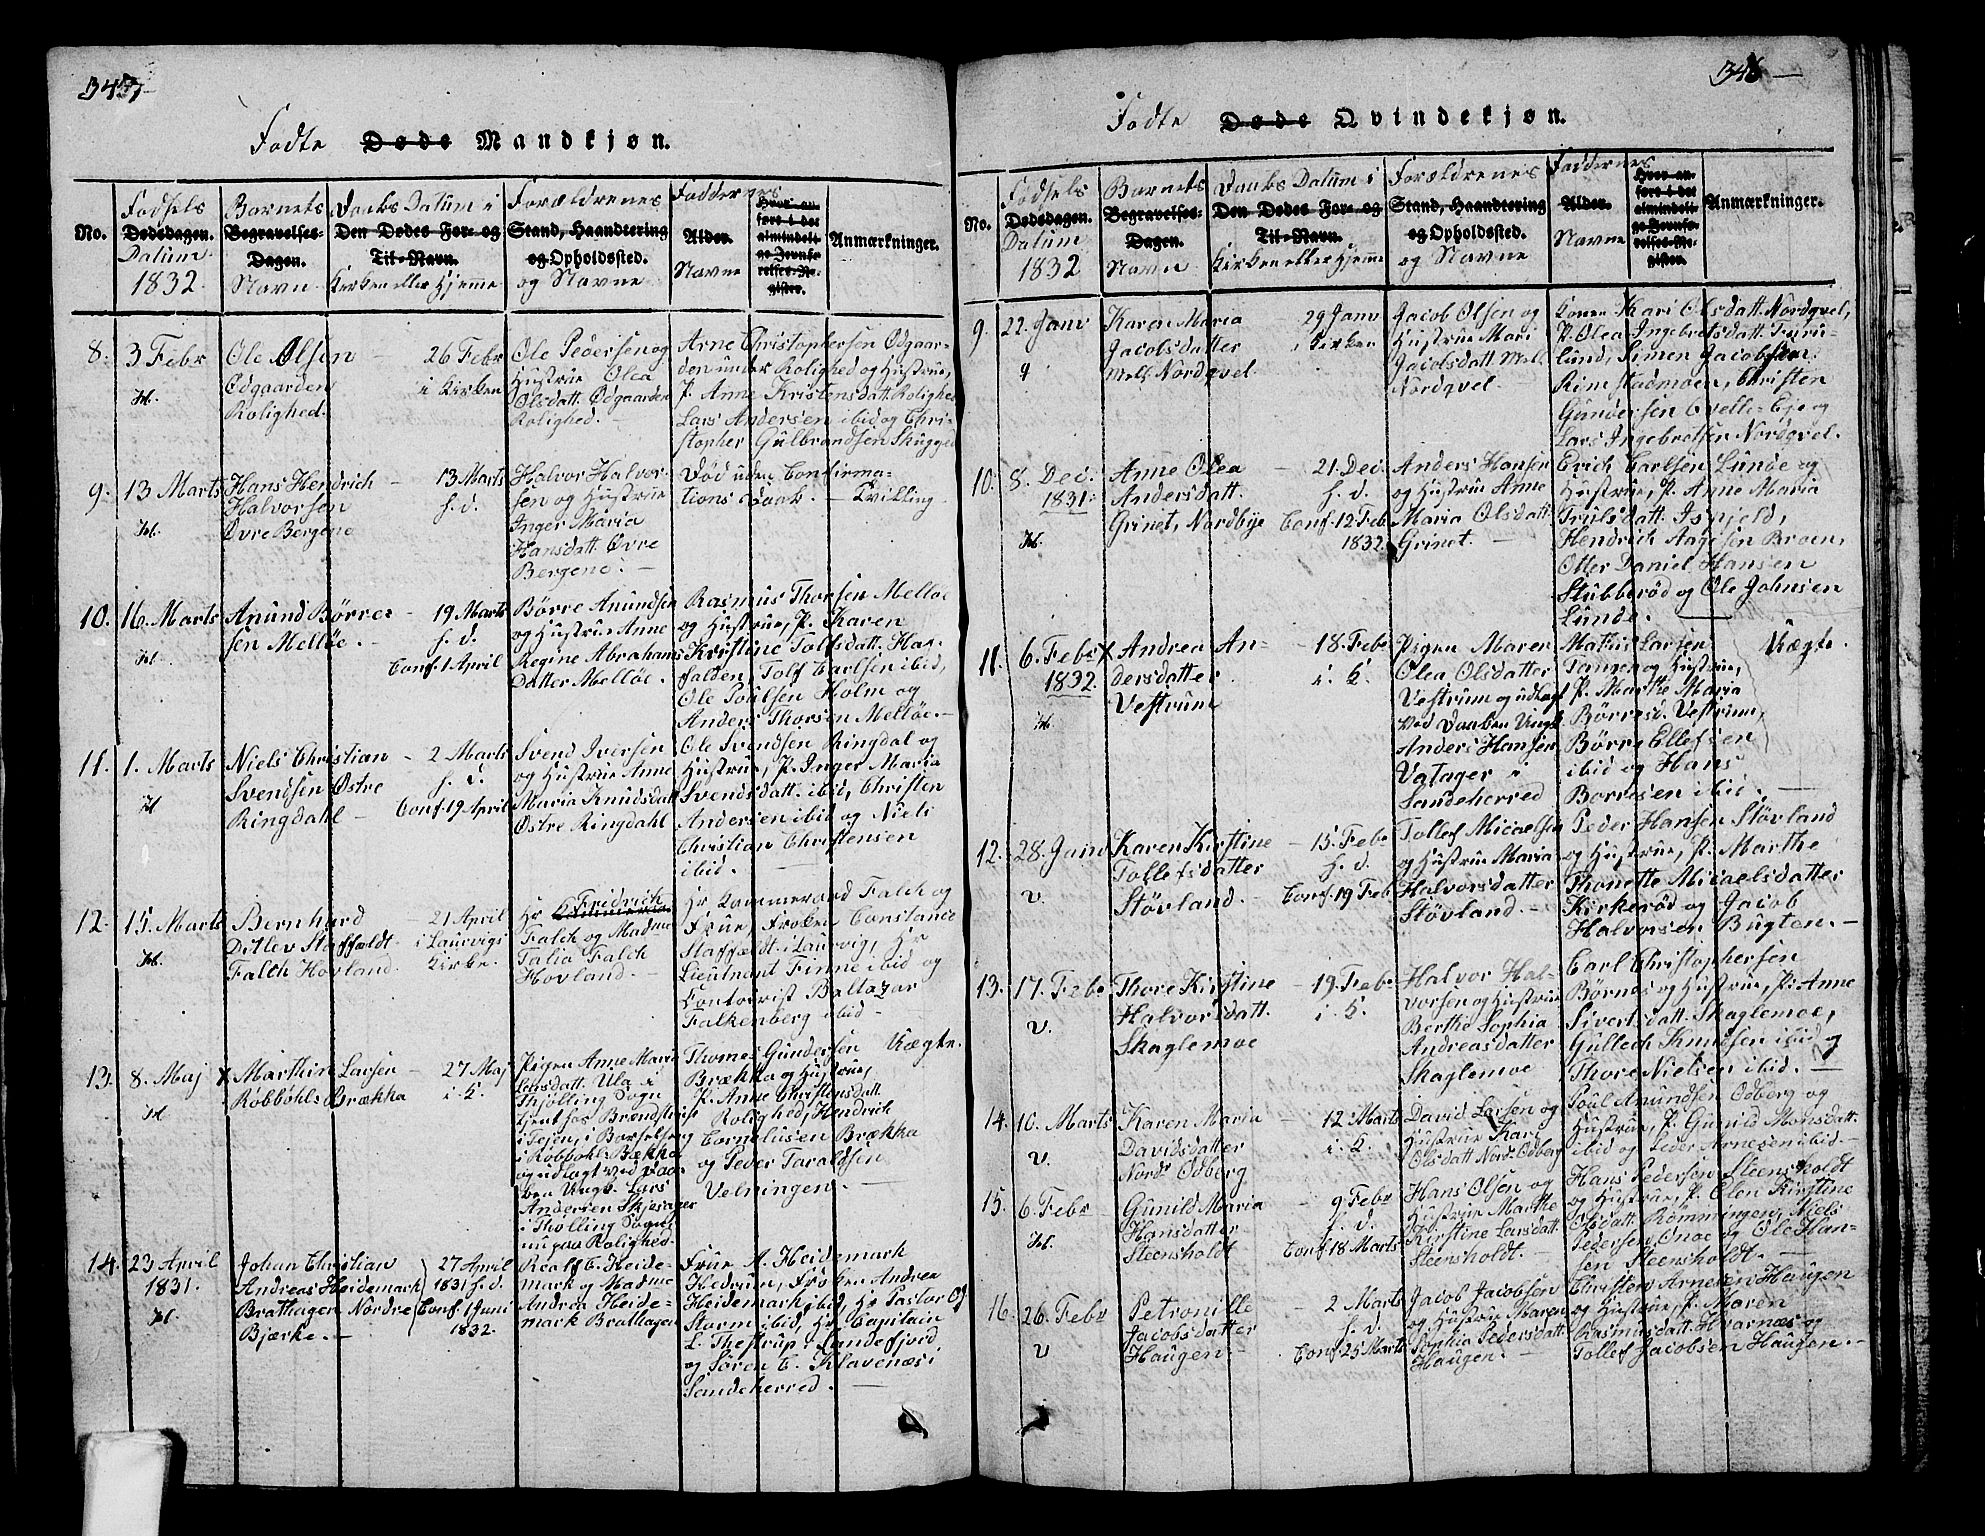 347
Fødte Døde Mandkjøn.
No.
Fødsels
Dødsdagen.
Datum
1832.
Barnets
Begravelses-
Dagen.
Navn
Daabs Datum i
Den Dødes For- og
Til-Navn.
Kirken eller Hjemme
Forældrenes
Stand, Haandtering
og Opholdssted.
og Navne
Faddernes
Alder.
Navne
Hvor an-
føre i det
almindeli-
ge Jevnfø-
relses-Re-
gister.
Anmærkninger.
8.
3 Febr
Ole Olsen
Odgaarden
Rolighed.
26 Febr
i Kirken
Ole Pedersen og
Hustrue Olea
Olsdatt. Odgaarden
Rolighed.
Arne Christophersen Odgaar-
den under Rolighed og Hustrue,
P. Anne Kristensdatt. Rolighed
Lars Andersen ibid og Chri-
stopher Gulbrandsen Skugged
9.
13 Marts
Hans Hendrich
Halvorsen
Øvre Bergene
13 Marts
h. d.
Halvor Halvor-
sen og Hustrue
Inger Maria
Hansdatt. Øvre
Bergene. —
Død uden Confirma-
tions Daab. — Tvilling
10.
16. Marts
Anund Børre-
sen Melløe. —
19 Marts
h. d.
Conf. 1 April
Børre Anundsen
og Hustrue Anne
Regine Abrahams
Datter Melløe. —
Rasmus Thorsen Melløe
og Hustrue, P. Karen
Kristine Tolfsdatt. Hau-
falden, Tolf Carlsen ibid,
Ole Poulsen Holm og
Anders Thorsen Melløe. —
11.
1. Marts
Niels Christian
Svendsen Østre
Ringdahl —
2 Marts
h. d.
Conf. 19 April
Svend Iversen
og Hustrue Anne
Maria Knudsdatt
Østre Ringdahl
Ole Svendsen Ringdal og
Hustrue, P. Inger Maria
Svendsdatt. ibid, Christen
Andersen ibid og Niels
Christian Christensen
ibid. —
12.
15. Marts
Bernhard
Ditlev Staffeldt
Falch Hovland.
21 April
i Laurvigs
Kirke.
Hr Fridrich
Falch og Madme
Talia Falch
Hovland. —
Hr Kammerraad Falch og
Frue, Frøken Constance
Staffeldt i Laurvig, Hr
Lieutnant Finne ibid og
Contoirist Baltazar
Falkenberg ibid —
13.
8. Maj
X Marthin Larsen
Robbøhls Brækka
27 Maj
i K.
Pigen Anne Maria
Larsdatt. Ula i
Thjølling Sogn
tjent hos Brandstrup
i Tejen, i Barselseng
i Robbøhls Brække
og udlagt ved Daa-
ben Ungk. Lars
Andersen Skjesager
i Thølling Sogn
nu paa Rolighed.
Thomes Gundersen
Brækka og Hustrue,
P. Anne Christensdatt.
Rolighed, Hendrich
Corneliusen Brækka
og Peder Taraldsen
Velningen. —
Uægte.
14.
23 April
1831.
Johan Christian
Andreas Heidemark
Brathagen Nordre
Bjerke. —
27 April
1831 h. d.
Conf. 1 Juni
1832.
Realf C. Heide-
mark og Madme
Andrea Heide-
mark Brathagen
Frue A. Heidemark
Hedrum, Frøken Andrea
Heidemark ibid, Hr Pastor O.
Storm ibid, Hr Capitain
L. Thestrup, Sandefjord
og Søren C. Klavenæs i
Sandeherred. —
348
Fødte Døde Qvindekjøn.
No.
Fødsels
Dødsdagen.
Datum
1832
Barnets
Begravelses-
Dagen.
Navn
Daabs Datum i
Den Dødes For- og
Til-Navn.
Kirken eller Hjemme
Forældrenes
Stand, Haandtering
og Opholdssted.
og Navne
Faddernes
Alder.
Navne
Hvor an-
føre i det
almindeli-
ge Jevnfø-
relses-Re-
gister.
Anmærkninger.
9.
22. Janv
Karen Maria
Jacobsdatter
Mell. Nordqvel
29 Janv
i Kirken
Jacob Olsen og
Hustrue Mari
Jacobsdatt Mell.
Nordqvel.
Konen Kari Olsdatt. Nordqvel,
P. Olea Ingebretsdatt. Furu-
lund, Simen Jacobsen
Rimstadmoen, Christen
Gundersen Qvelle-Eje og
Lars Ingebretsen Nordqvel.
10.
8. Dec.
1831.
Anne Olea
Andersdatt.
Grinet, Nordbye
21. Dec.
h. d.
Conf. 12 Feb
1832.
Anders Hansen
og Hustrue Anne
Maria Olsdatt
Grinet. —
Erich Carlsen Lunde og
Hustrue, P. Anne Maria
Trulsdatt. Isnjeld,
Hendrich Aagesen Broen,
Otter Daniel Hansen
Stubberød og Ole Johnsen
Lunde. —
11.
6. Febr
1832.
X Andrea An-
dersdatter
Vestrum
18. Febr
i. K.
Pigen Maren
Olea Olsdatter
Vestrum og udlagt
ved Daaben Ungk.
Anders Hansen
Vatager i
Sandeherred
Mathis Larsen
Tansen og Hustrue,
P. Marthe Maria
Børresd. Vestrum,
Børre Ellefsen
ibid og Hans
Borresen ibid. —
Uægte.
12.
28. Janv
v.
Karen Kirstine
Tollefsdatter
Støvland.
15. Febr
h. d.
Conf. 19 Feb
Tollef Micaelsen
og Hustrue Maria
Halvorsdatter
Støvland. —
Peder Hansen Støvland
og Hustrue, P. Marthe
Thonette Micaelsdatter
Kirkerød og Jacob
Halvorsen Bugten. —
13.
17. Febr
v.
Thore Kirstine
Halvorsdatt.
Skaglemoe
19. Febr
i. K.
Halvor Hal-
vorsen og Hustrue
Berthe Sophia
Andreasdatter
Skaglemoe
Carl Christophersen
Børnes og Hustrue, P. Anne
Sivertsdatt. Skaglemoe,
Gullech Knudsen ibid og
Thore Nielsen ibid. —
14.
10. Marts
v.
Karen Maria
Davidsdatter
Nordr Odberg
12 Marts
i. K.
David Larsen og
Hustrue Kari
Olsdatt Nordr Odberg
Poul Anundsen Odberg og
Hustrue, P. Gunild Monsdatt.
ibid og Peder Arnesen ibid —
15.
6. Febr
Gunild Maria
Hansdatter
Steensholdt
9 Febr
h. d.
Conf 18 Marts
Hans Olsen og
Hustrue Marthe
Kirstine Larsdatt.
Steensholdt. —
Hans Pedersen Steensholdt
og Hustrue, P. Elen Kirstine
Olsdatt. Rømmingen, Niels
Pedersen Onoe og Ole Han-
sen Steensholdt. —
16.
26. Febr
v
Petronille
Jacobsdatter
Haugen. —
2 Marts
h. d.
Conf 25 Marts
Jacob Jacobsen
og Hustrue Maren
Sophia Pedersdatt.
Haugen. —
Christen Arnesen Haugen
og Hustrue, P. Maren
Rasmusdatt. Hvarnæs og
Tollef Jacobsen Haugen. —